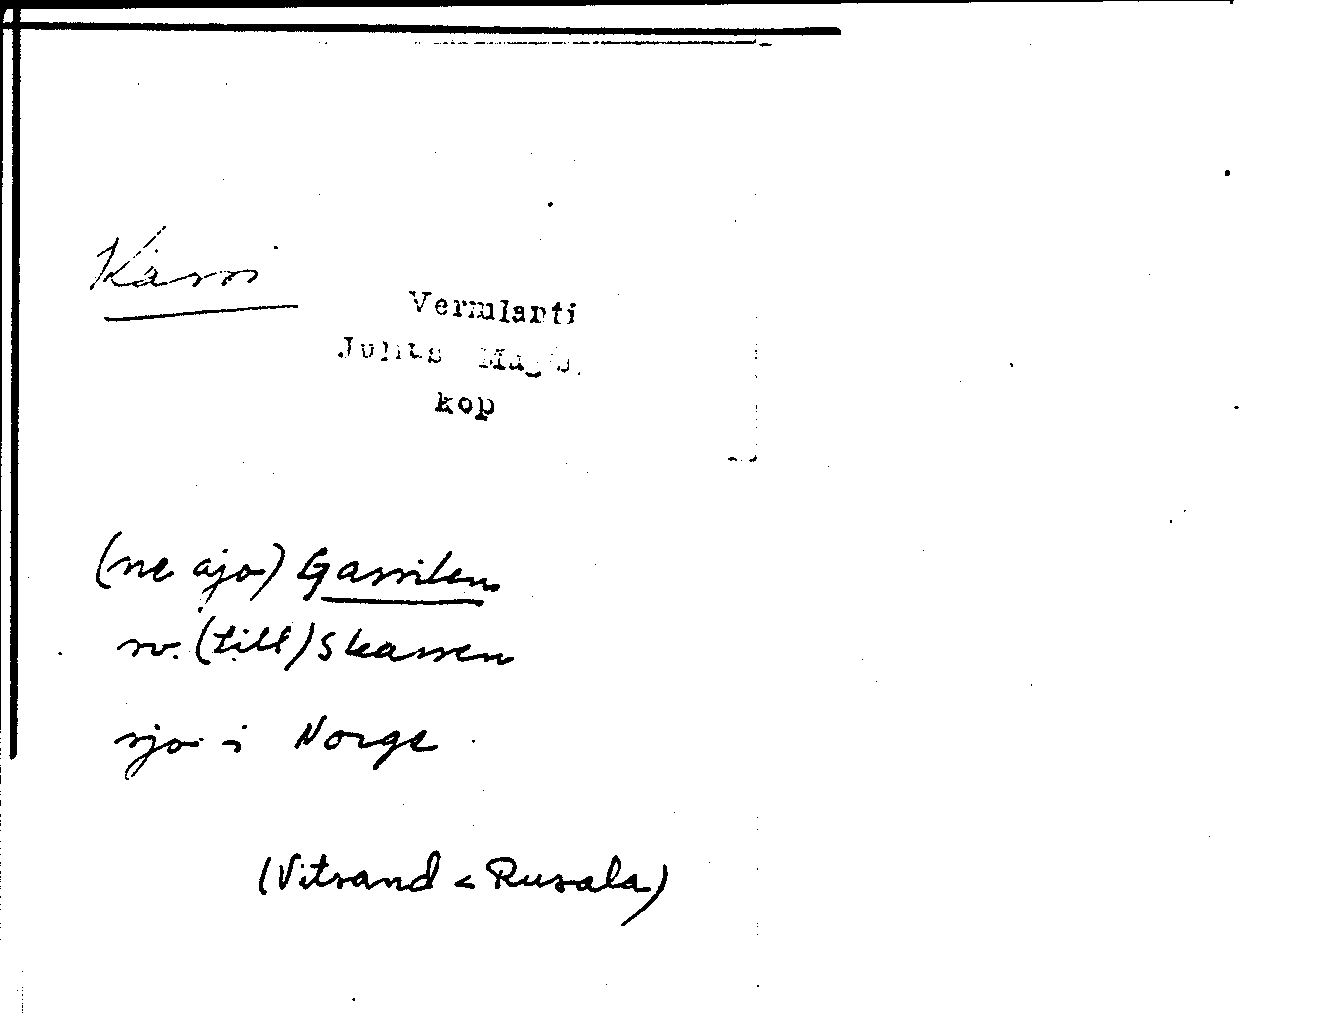 Kassi
Vermlanti
Julius
kop
(ne ajo) Gassilen
sv. (till) Skassen
sjö i Norge
(Vitsand < Rusala)